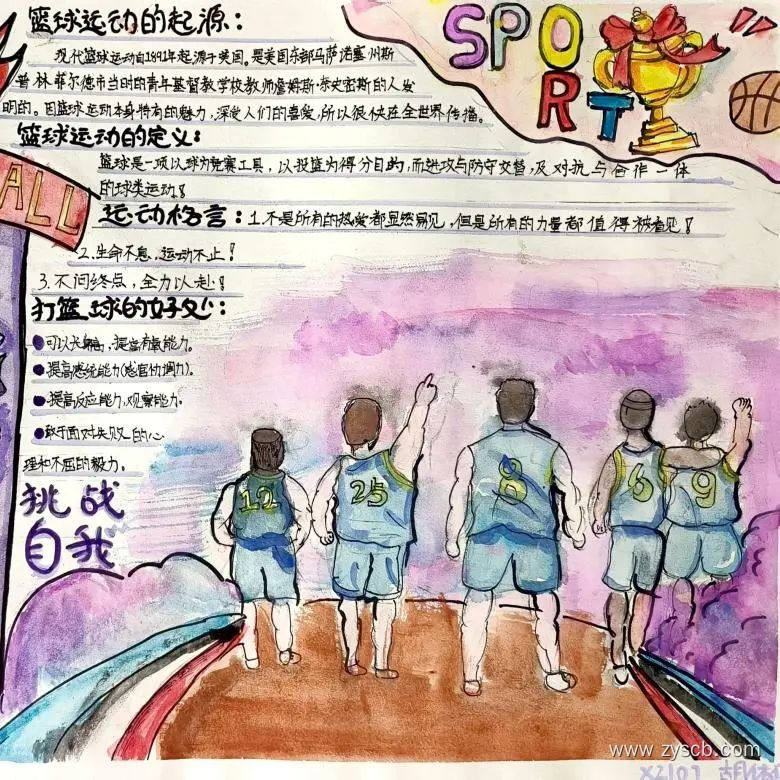 篮球运动的起源:
现代篮球运动自1891年起源于美国。是美国东部马萨诸塞州斯
普林菲尔德市当时的青年基督教学校教师詹姆斯·奈史密斯的人发
明的。因篮球运动本身特有的魅力,深受人们的喜爱,所以很快在全世界传播。
篮球运动的定义:
篮球是一项以球为竞赛工具,以投篮为得分目的,而进攻与防守交替,及对抗与合作一体
的球类运动!
运动格言:1.不是所有的热爱都显然易见,但是所有的力量都值得被看见!
2.生命不息,运动不止!
3.不问终点,全力以赴!
打篮球的好处:
可以长 提高有氧能力。
提高感统能力(感官协调力)。
提高反应能力,观察能力。
敢于面对失败的心
理和不屈的毅力。
挑战
自我
SPORT
ALL
12
25
8
6
9
www.zyscb.com